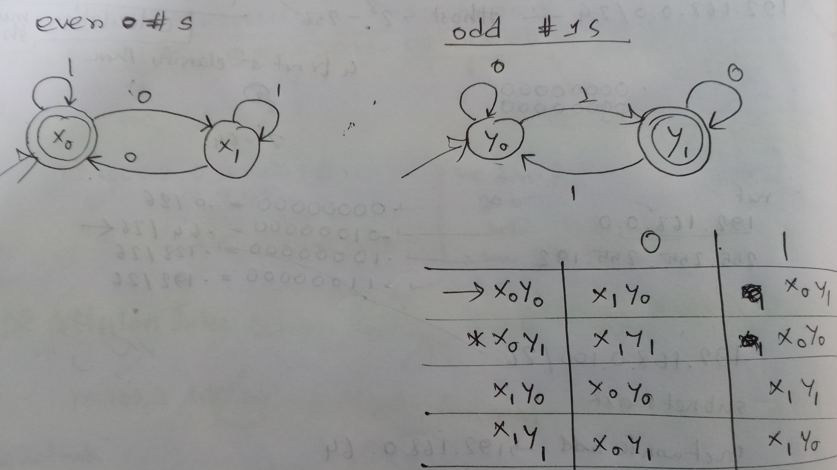 even 0 #s
odd #1s
1
0
x₀
1
x₁
0
0
y₀
1
0
y₁
1
0 1
→ x₀y₀ x₁y₀ x₀y₁
* x₀y₁ x₁y₁ x₀y₀
x₁y₀ x₀y₀ x₁y₁
x₁y₁ x₀y₁ x₁y₀